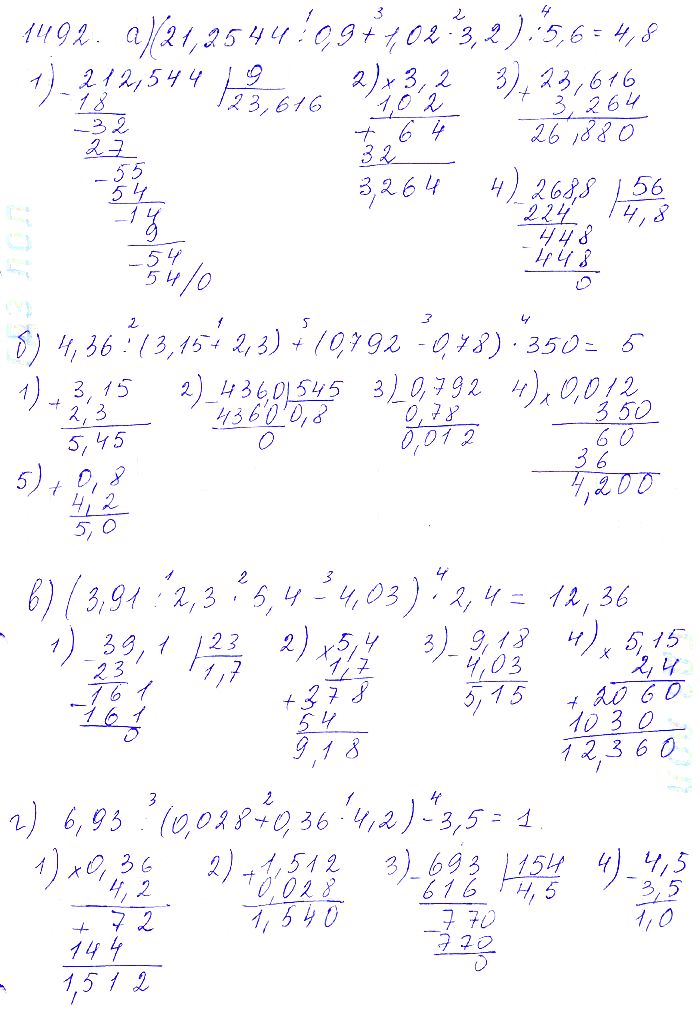 1492. а) (21,2544 : 0,9 + 1,02 · 3,2) : 5,6 = 4,8
1) 212,544 | 9
18 23,616
32
27
55
54
14
9
54
54/0
2) × 3,2
1,02
+ 64
32
3,264
3) + 23,616
3,264
26,880
4) 268,8 | 56
224 4,8
448
448
0
б) 4,36 : (3,15 + 2,3) + (0,792 - 0,78) · 350 = 5
1) + 3,15
2,3
5,45
2) - 436,0 | 545
4360 0,8
0
3) - 0,792
0,78
0,012
4) × 0,012
350
60
36
4,200
5) + 0,8
4,2
5,0
в) (3,91 : 2,3 · 5,4 - 4,03) · 2,4 = 12,36
1) - 39,1 | 23
23 1,7
- 161
161
0
2) × 5,4
1,7
+ 378
54
9,18
3) - 9,18
4,03
5,15
4) × 5,15
2,4
+ 2060
1030
12,360
г) 6,93 : (0,028 + 0,36 · 4,2) - 3,5 = 1
1) × 0,36
4,2
+ 72
144
1,512
2) + 1,512
0,028
1,540
3) - 693 | 154
616 4,5
- 770
770
0
4) - 4,5
3,5
1,0